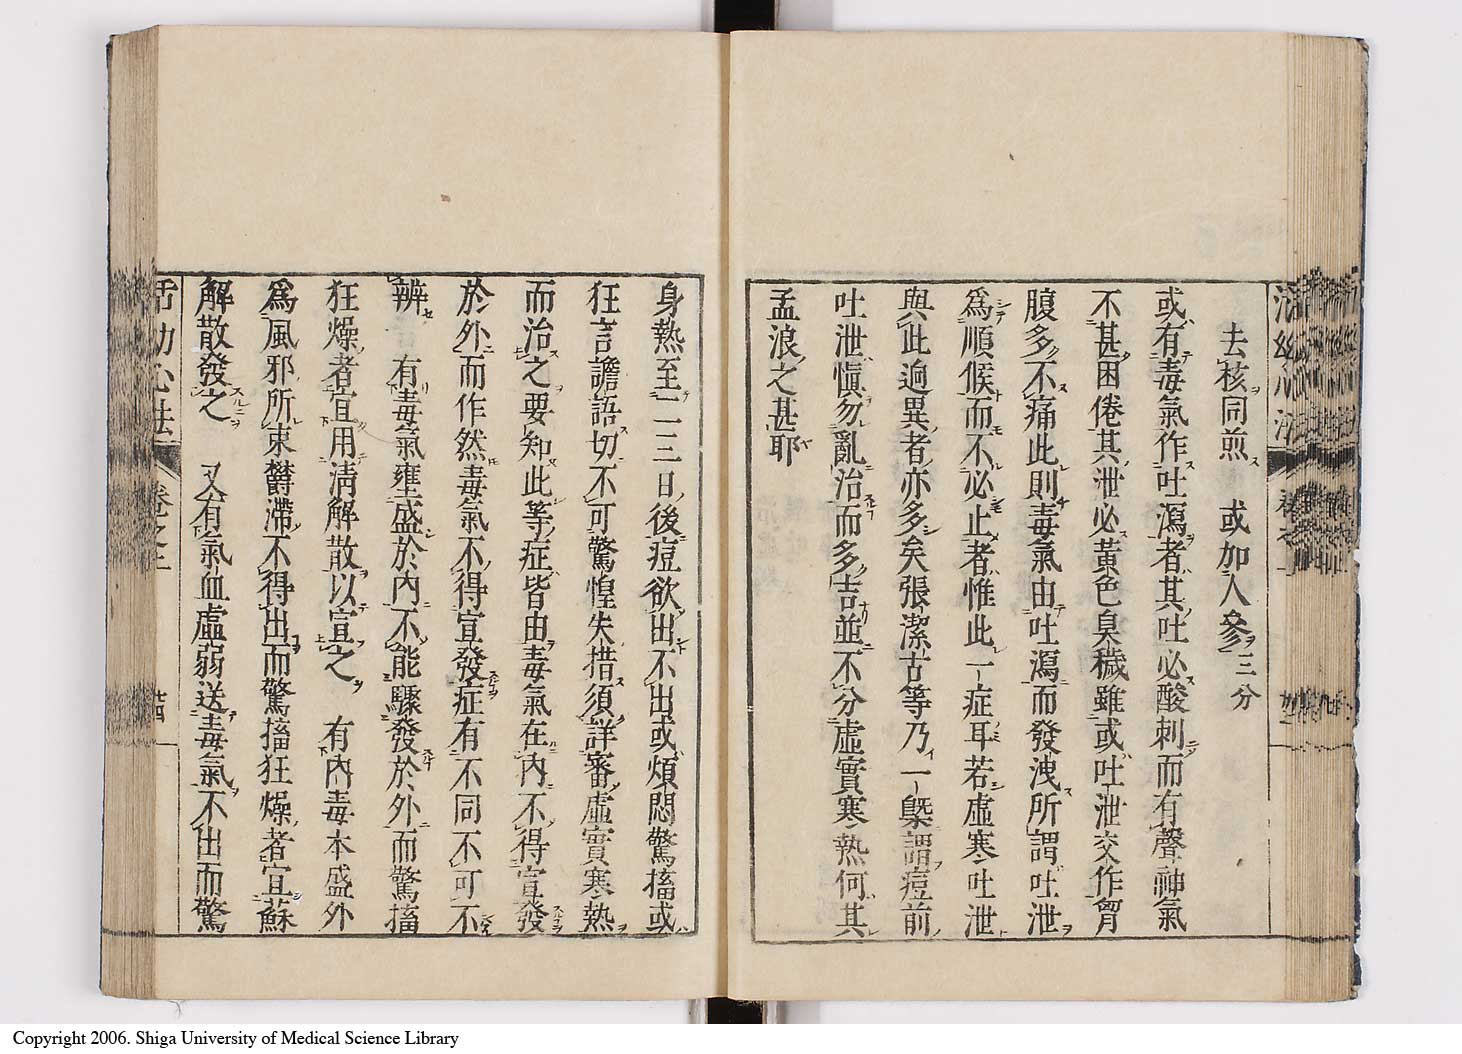 去核同煎　或加人參三分
或有毒氣作吐瀉者其吐必酸刺而有聲神氣
不甚困倦其泄必黃色臭穢雖或吐泄交作胷
腹多不痛此則毒氣由吐瀉而發洩所謂吐泄
爲順候而不必止者惟此一症耳若虛寒吐泄
與此逈異者亦多矣張潔古等乃一槩謂痘前
吐泄愼勿亂治而多吉並不分虛實寒熱何其
孟浪之甚耶
身熱至二三日後痘欲出不出或煩悶驚搐或
狂言譫語切不可驚惶失措須詳審虛實寒熱
而治之要知此等症皆由毒氣在內不得宣發
於外而作然毒氣不得宣發症有不同不可不
辨　有毒氣壅盛於內不能驟發於外而驚搐
狂燥者宜用淸解散以宣之　有內毒本盛外
爲風邪所束欝滯不得出而驚搐狂燥者宜蘇
解散發之　又有氣血虛弱送毒氣不出而驚
活幼心法　卷之三　廿四
Copyright 2006. Shiga University of Medical Science Library